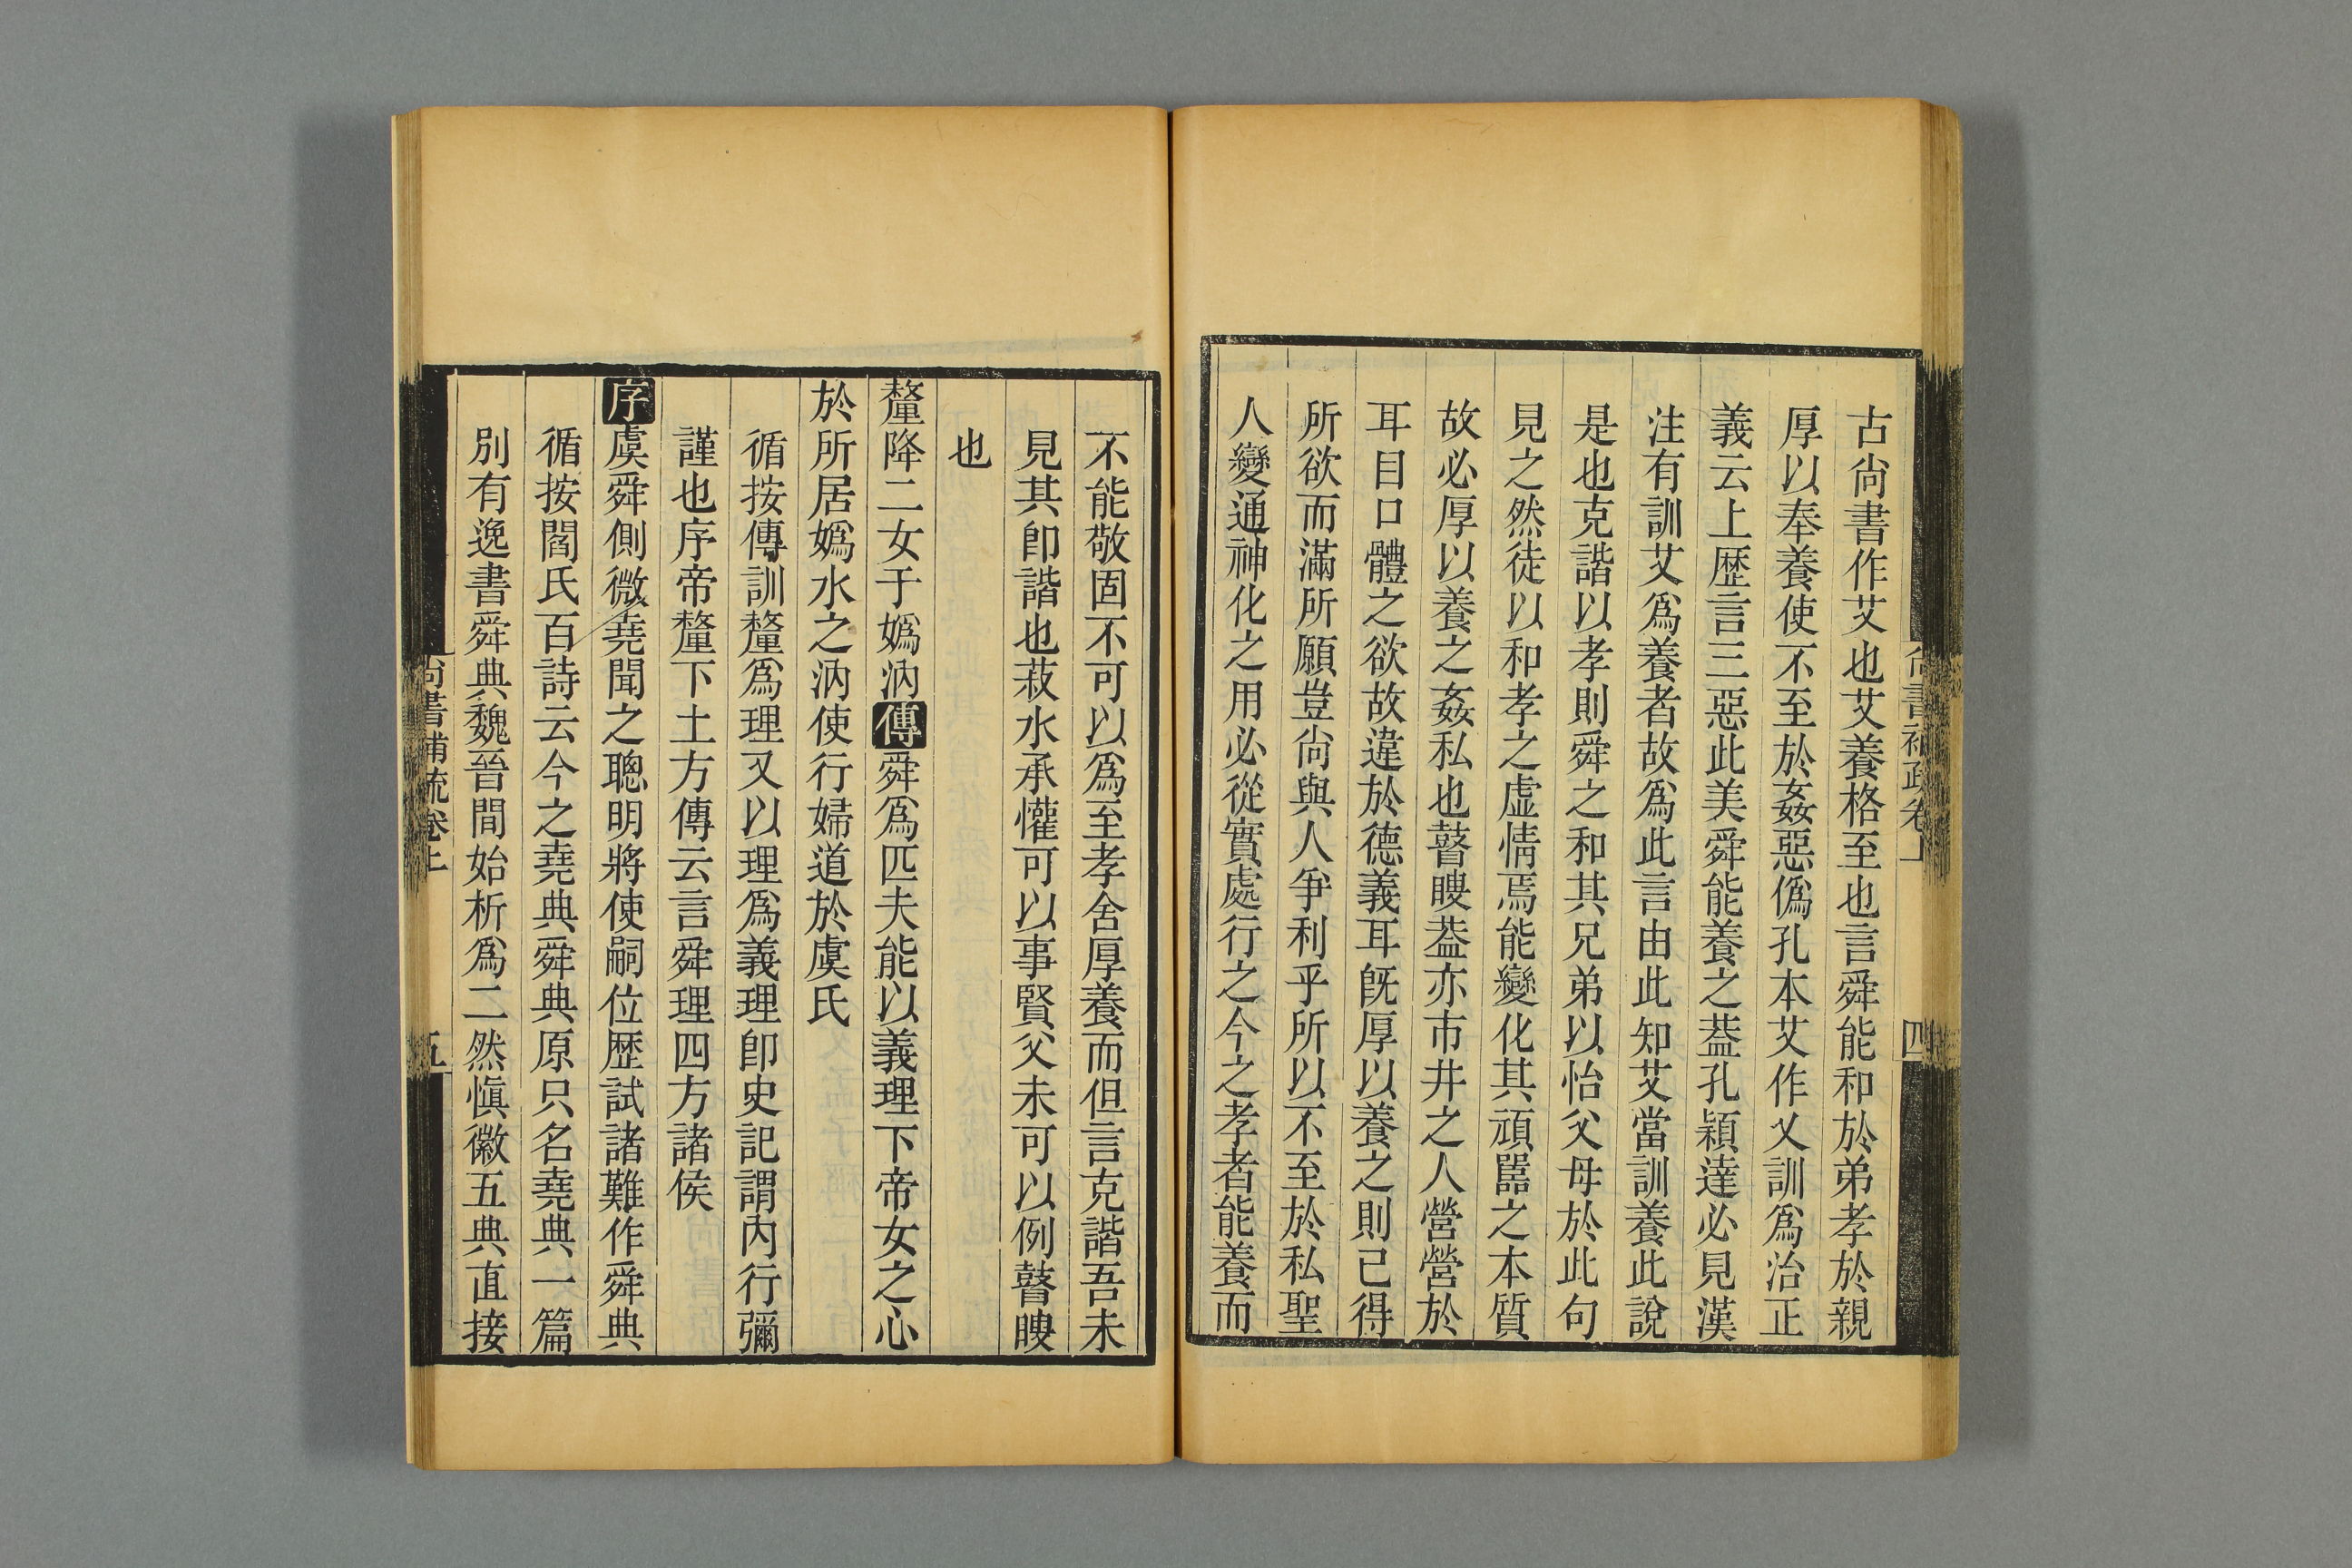 古尙書作艾也艾養格至也言舜能和於弟孝於親
厚以奉養使不至於姦惡僞孔本艾作乂訓爲治正
義云上歷言三惡此美舜能養之葢孔穎達必見漢
注有訓艾爲養者故爲此言由此知艾當訓養此說
是也克諧以孝則舜之和其兄弟以怡父母於此句
見之然徒以和孝之虛情焉能變化其頑嚚之本質
故必厚以養之姦私也瞽瞍葢亦市井之人營營於
耳目口體之欲故違於德義耳旣厚以養之則已得
所欲而滿所願豈尙與人爭利乎所以不至於私聖
人變通神化之用必從實處行之今之孝者能養而
尙書補疏卷上
四
不能敬固不可以爲至孝舍厚養而但言克諧吾未
見其卽諧也菽水承懽可以事賢父未可以例瞽瞍
也
釐降二女于嬀汭傳舜爲匹夫能以義理下帝女之心
於所居嬀水之汭使行婦道於虞氏
循按傳訓釐爲理又以理爲義理卽史記謂內行彌
謹也序帝釐下土方傳云言舜理四方諸侯
序虞舜側微堯聞之聰明將使嗣位歷試諸難作舜典
循按閻氏百詩云今之堯典舜典原只名堯典一篇
別有逸書舜典魏晉間始析爲二然愼徽五典直接
尙書補疏卷上
五